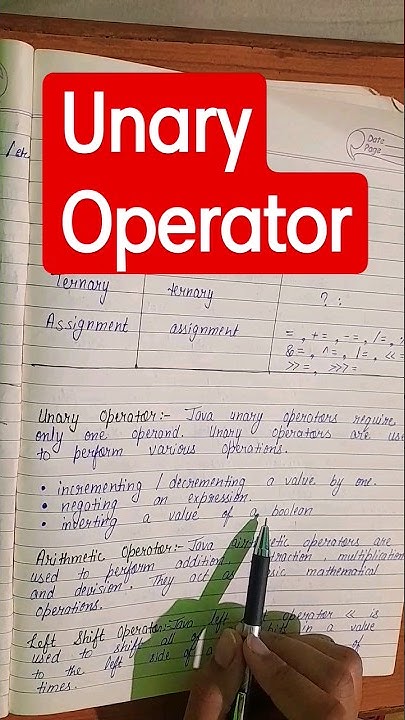 Unary
Operator
Date
Page
/ etc
Ternary ternary ? :
Assignment assignment = , += , -= , /= ,
&= , ^= , |= , <<=
>>= , >>>=
Unary Operator:- Java unary operators require
only one operand. Unary operators are use
to perform various operations.
• incrementing / decrementing a value by one.
• negating an expression.
• inverting a value of a boolean
Arithmetic Operator:- Java operators are
used to perform addition, multiplication
and devision. They act as mathematical
operations.
Left Shift Operator:- Java left operator << is
used to shift all of in a value
to the left side of a of
times.